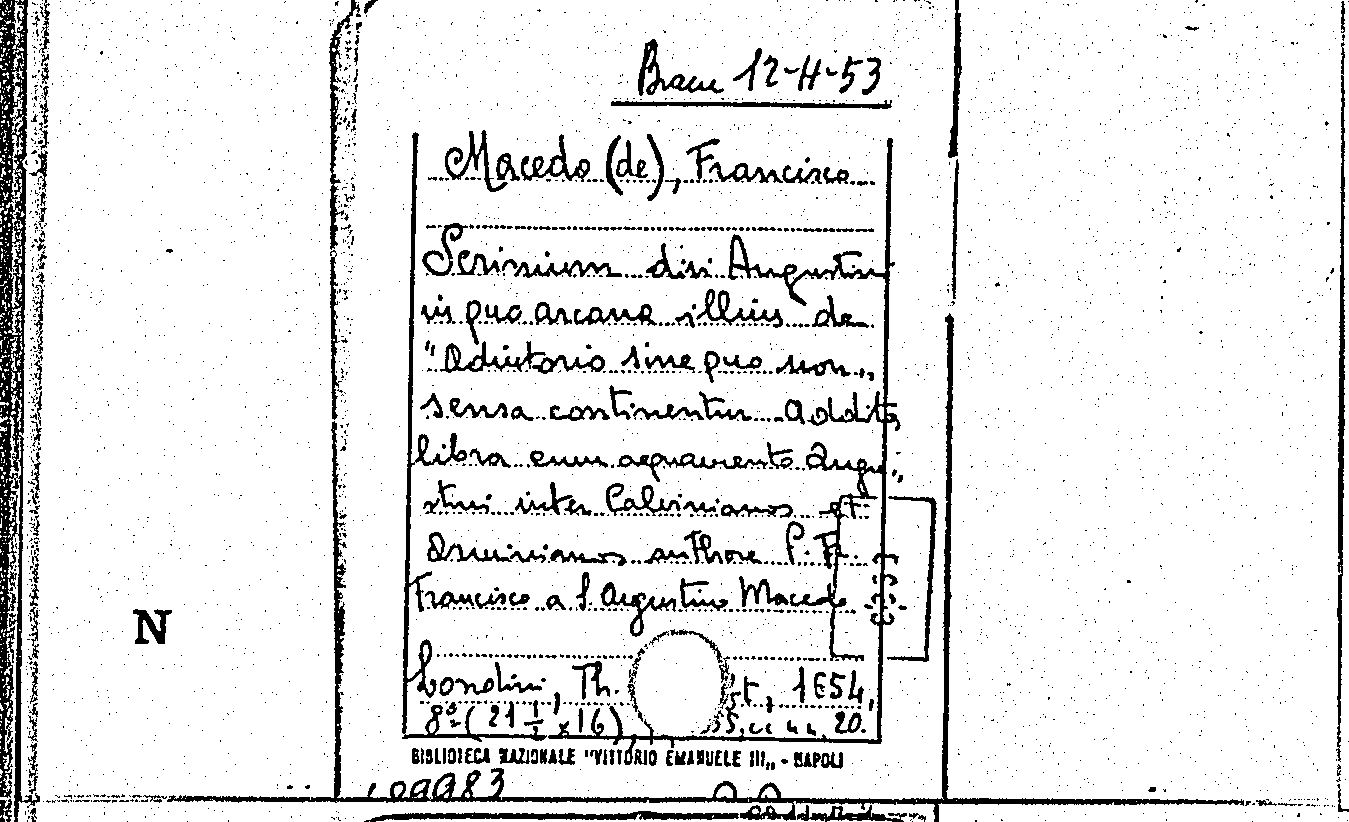 Branc 12-H-53
Macedo (de), Francisco
Scrinium divi Augustini
in quo arcana illius de
"Adiutorio sine quo non„
sensa continentur Addita
libra cum aequamento Augu-
stini inter Calvinianos et
Arminianos authore P. Fr.
Francisco a S. Augustino Macedo
Londini, Th. t, 1654,
8º (21 1/2 x 16), 20.
BIBLIOTECA NAZIONALE "VITTORIO EMANUELE III„ - NAPOLI
N